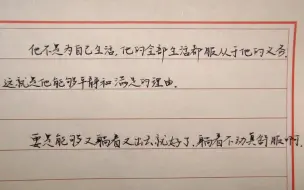 他不是为自己生活，他的全部生活都服从于他的义务，
这就是他能够平静和满足的理由。
要是能够又躺着又出去就好了，躺着不动真舒服啊。